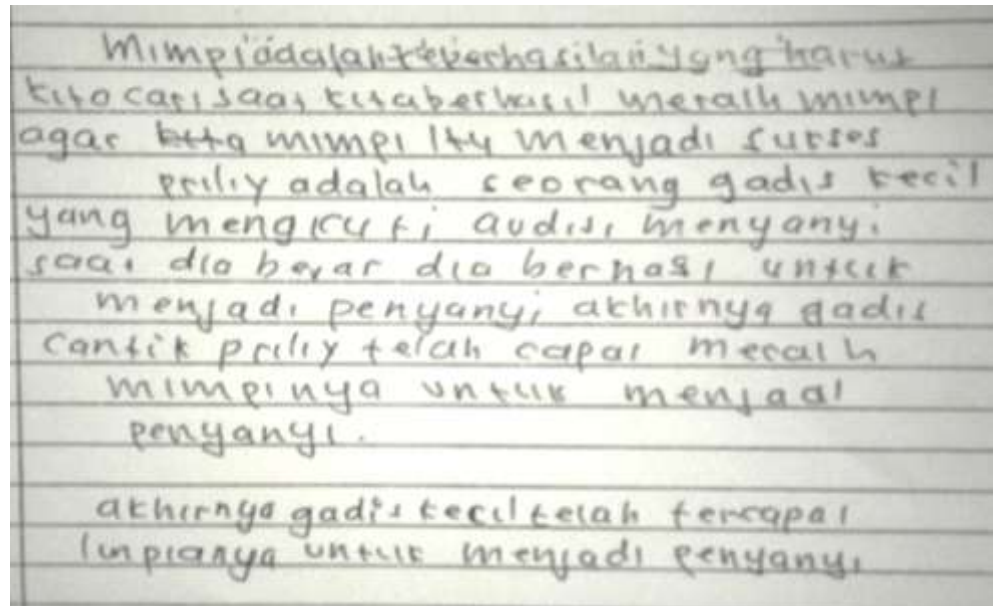 Mimpi adalah keberhasilan yang harus
kita cari saat kita berhasil meraih mimpi
agar kita mimpi itu menjadi sukses
prilly adalah seorang gadis kecil
yang mengikuti audisi menyanyi
saat dia besar dia berhasi untuk
menjadi penyanyi akhirnya gadis
cantik prilly telah capai meraih
mimpinya untuk menjadi
penyanyi.
akhirnya gadis kecil telah tercapai
impianya untuk menjadi penyanyi